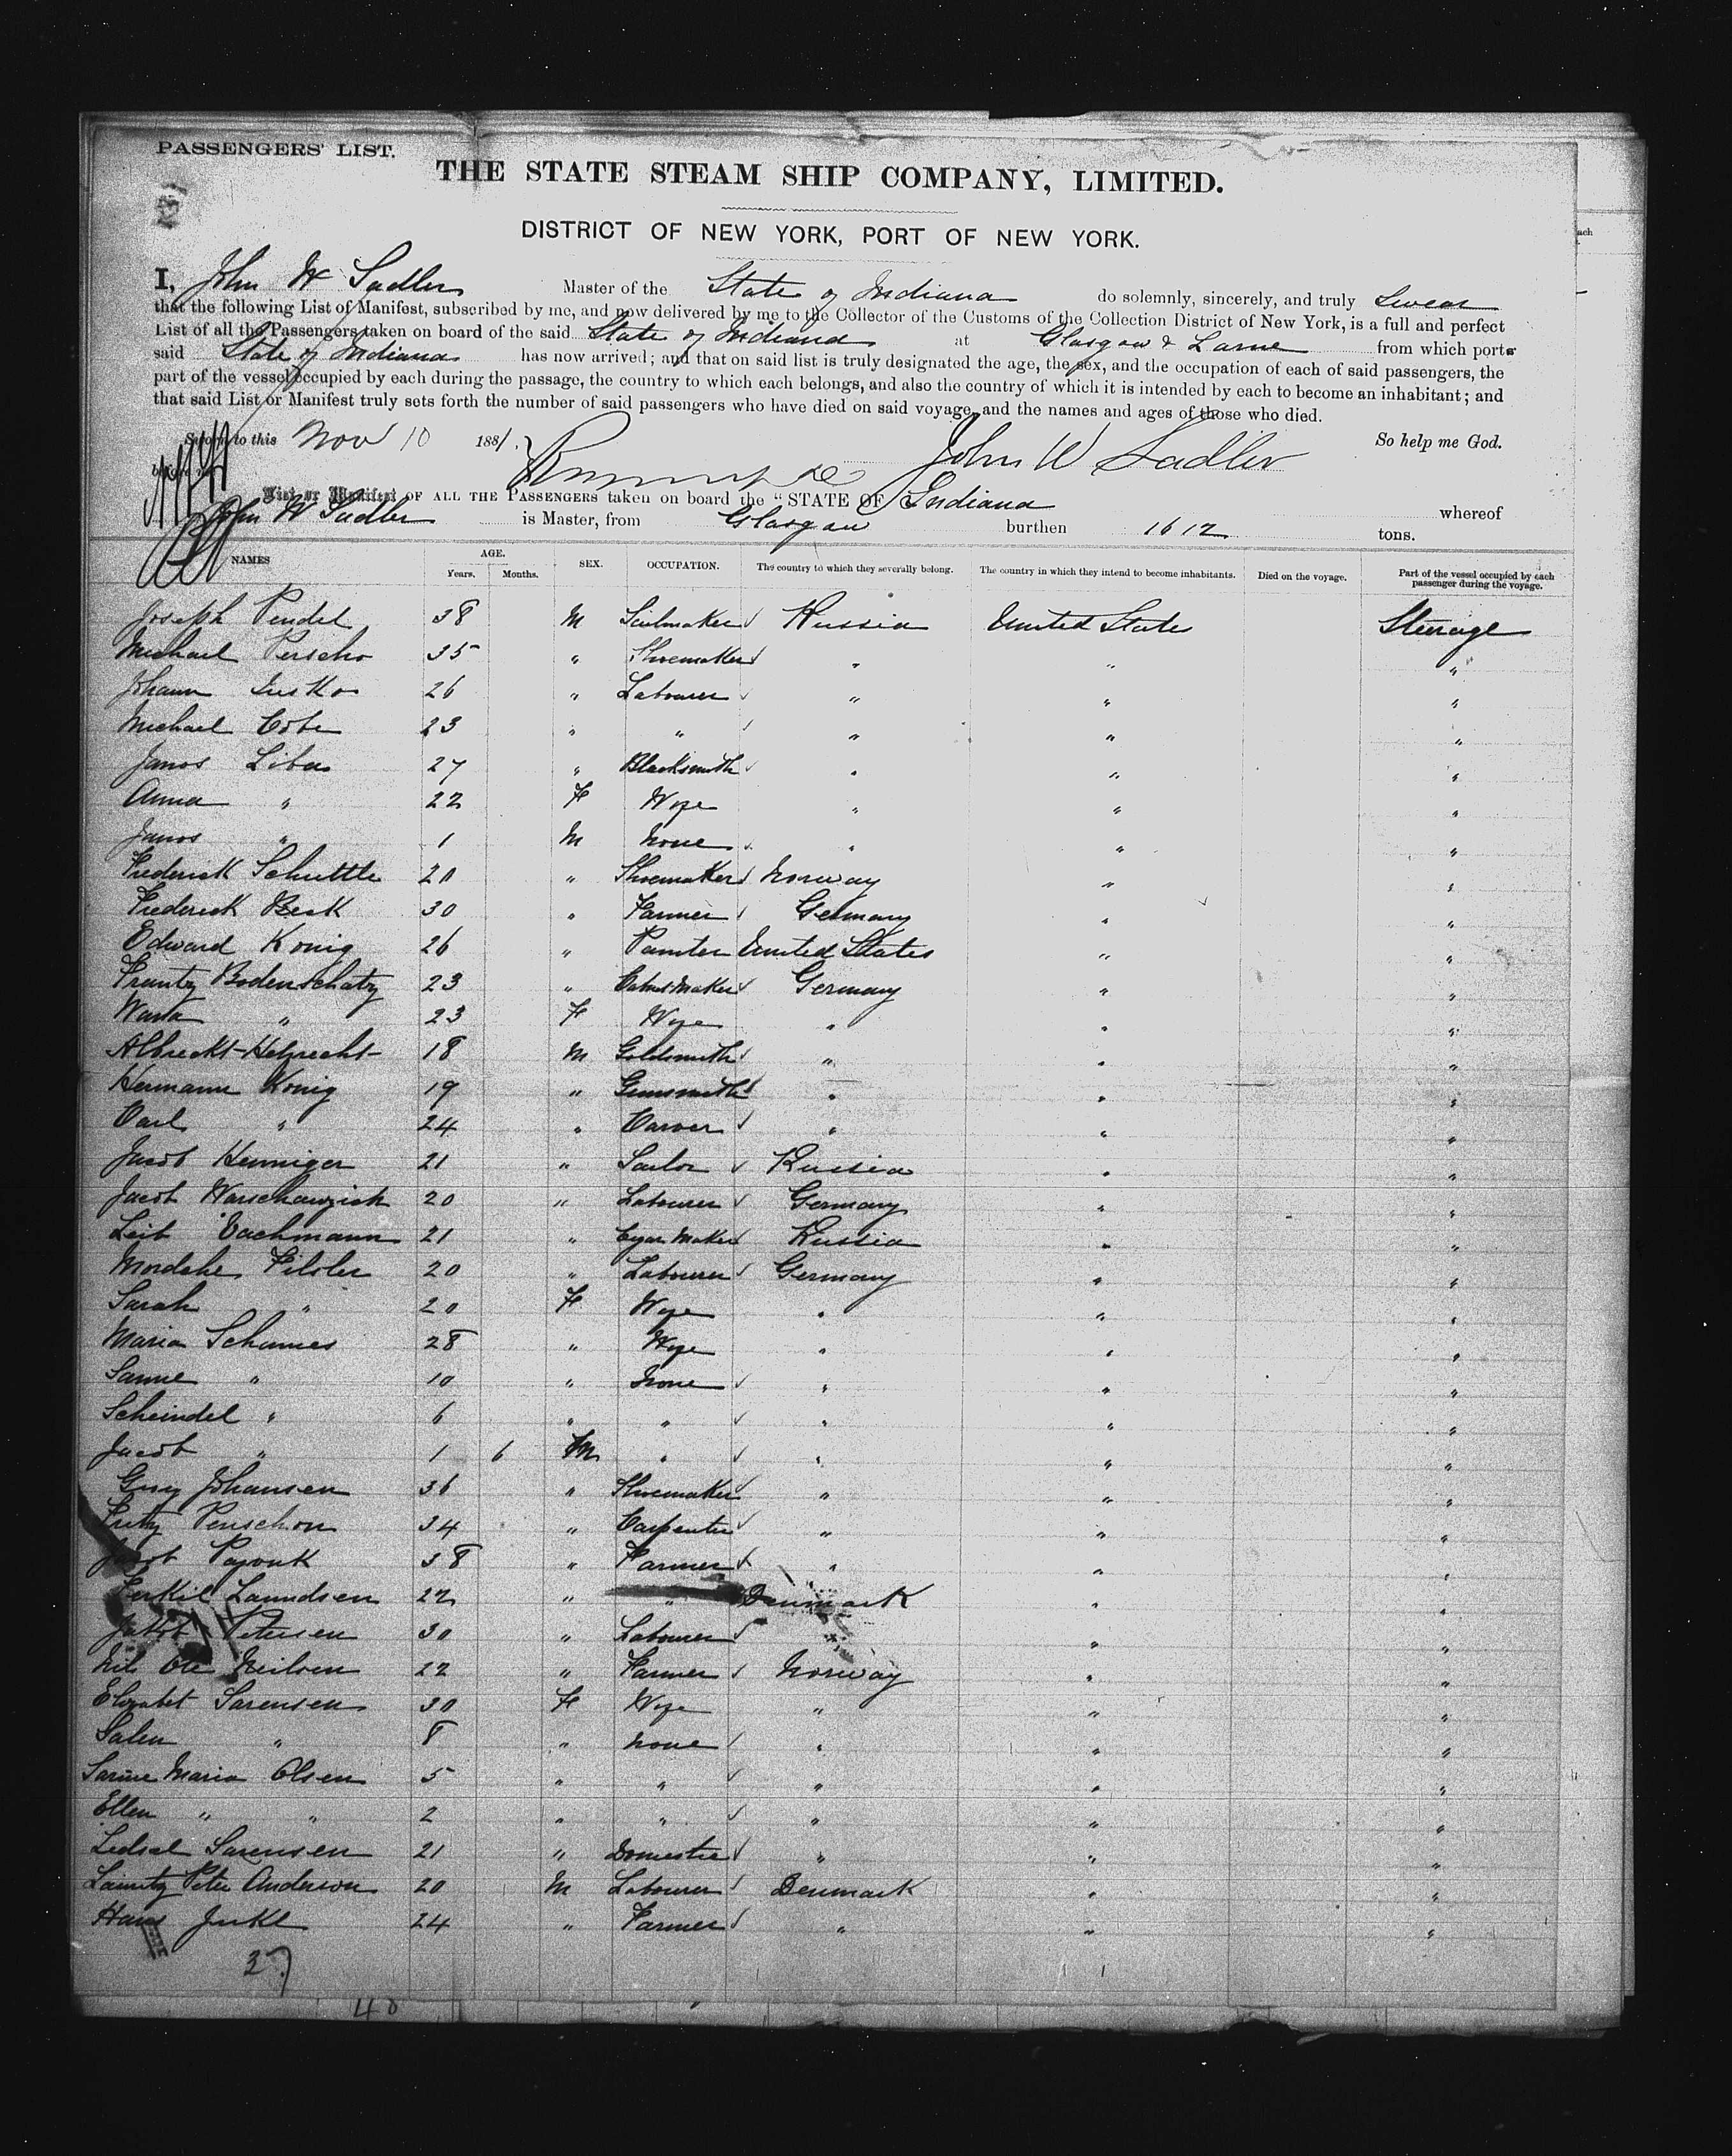 PASSENGERS' LIST.
THE STATE STEAM SHIP COMPANY, LIMITED.
DISTRICT OF NEW YORK, PORT OF NEW YORK.
I, John W Sadler Master of the State of Indiana do solemnly, sincerely, and truly Swear
that the following List of Manifest, subscribed by me, and now delivered by me to the Collector of the Customs of the Collection District of New York, is a full and perfect
List of all the Passengers taken on board of the said State of Indiana at Glasgow & Larne from which ports
said State of Indiana has now arrived; and that on said list is truly designated the age, the sex, and the occupation of each of said passengers, the
part of the vessel occupied by each during the passage, the country to which each belongs, and also the country of which it is intended by each to become an inhabitant; and
that said List or Manifest truly sets forth the number of said passengers who have died on said voyage, and the names and ages of those who died.
Sworn to this Nov 10 1881. John W Sadler So help me God.
before me
List or Manifest OF ALL THE PASSENGERS taken on board the "STATE OF Indiana whereof
John W Sadler is Master, from Glasgow burthen 1612 tons.
NAMES AGE. Years. Months. SEX. OCCUPATION. The country to which they severally belong. The country in which they intend to become inhabitants. Died on the voyage. Part of the vessel occupied by each passenger during the voyage.
Joseph Pendel 38 M Sailmaker Russia United States Steerage
Michael Perscho 35 " Shoemaker " " "
Johann 26 " Labourer " " "
Michael 23 " " " " "
Janos Liba 27 " Blacksmith " " "
Anna " 22 F Wife " " "
Janos " 1 M None " " "
Frederick Schuttle 20 " Shoemaker Norway " "
Frederick Besk 30 " Farmer Germany " "
Edward Konig 26 " Painter United States " "
Frantz Bodenschatz 23 " Cabinet Maker Germany " "
" 23 F Wife " " "
Albreckt 18 M Goldsmith " " "
Hermann Konig 19 " Gunsmith " " "
Carl " 24 " Carver " " "
Jacob Henniger 21 " Sailor Russia " "
Jacob Warschawziak 20 " Labourer Germany " "
Leib Bachmann 21 " Cigar Maker Russia " "
Mordche 20 " Labourer Germany " "
Sarah " 20 F Wife " " "
Maria Schames 28 " Wife " " "
Sanne " 10 " None " " "
Scheindel " 6 " " " " "
Jacob " 1 6 M " " " "
Johansen 36 " Shoemaker " " "
Fritz Penschon 34 " Carpenter " " "
38 " Farmer " " "
Laundsen 22 " " Denmark " "
Jakob Petersen 30 " Labourer " " "
Nils Ole Neilsen 22 " Farmer Norway " "
Elizabet Sarensen 30 F Wife " " "
Salen " 8 " None " " "
Sarine Maria Olsen 5 " " " " "
Ellen " " 2 " " " " "
Sarensen 21 " Domestic " " "
Lauritz Peter Anderson 20 M Labourer Denmark " "
Hans 24 " Farmer " " "
37
40